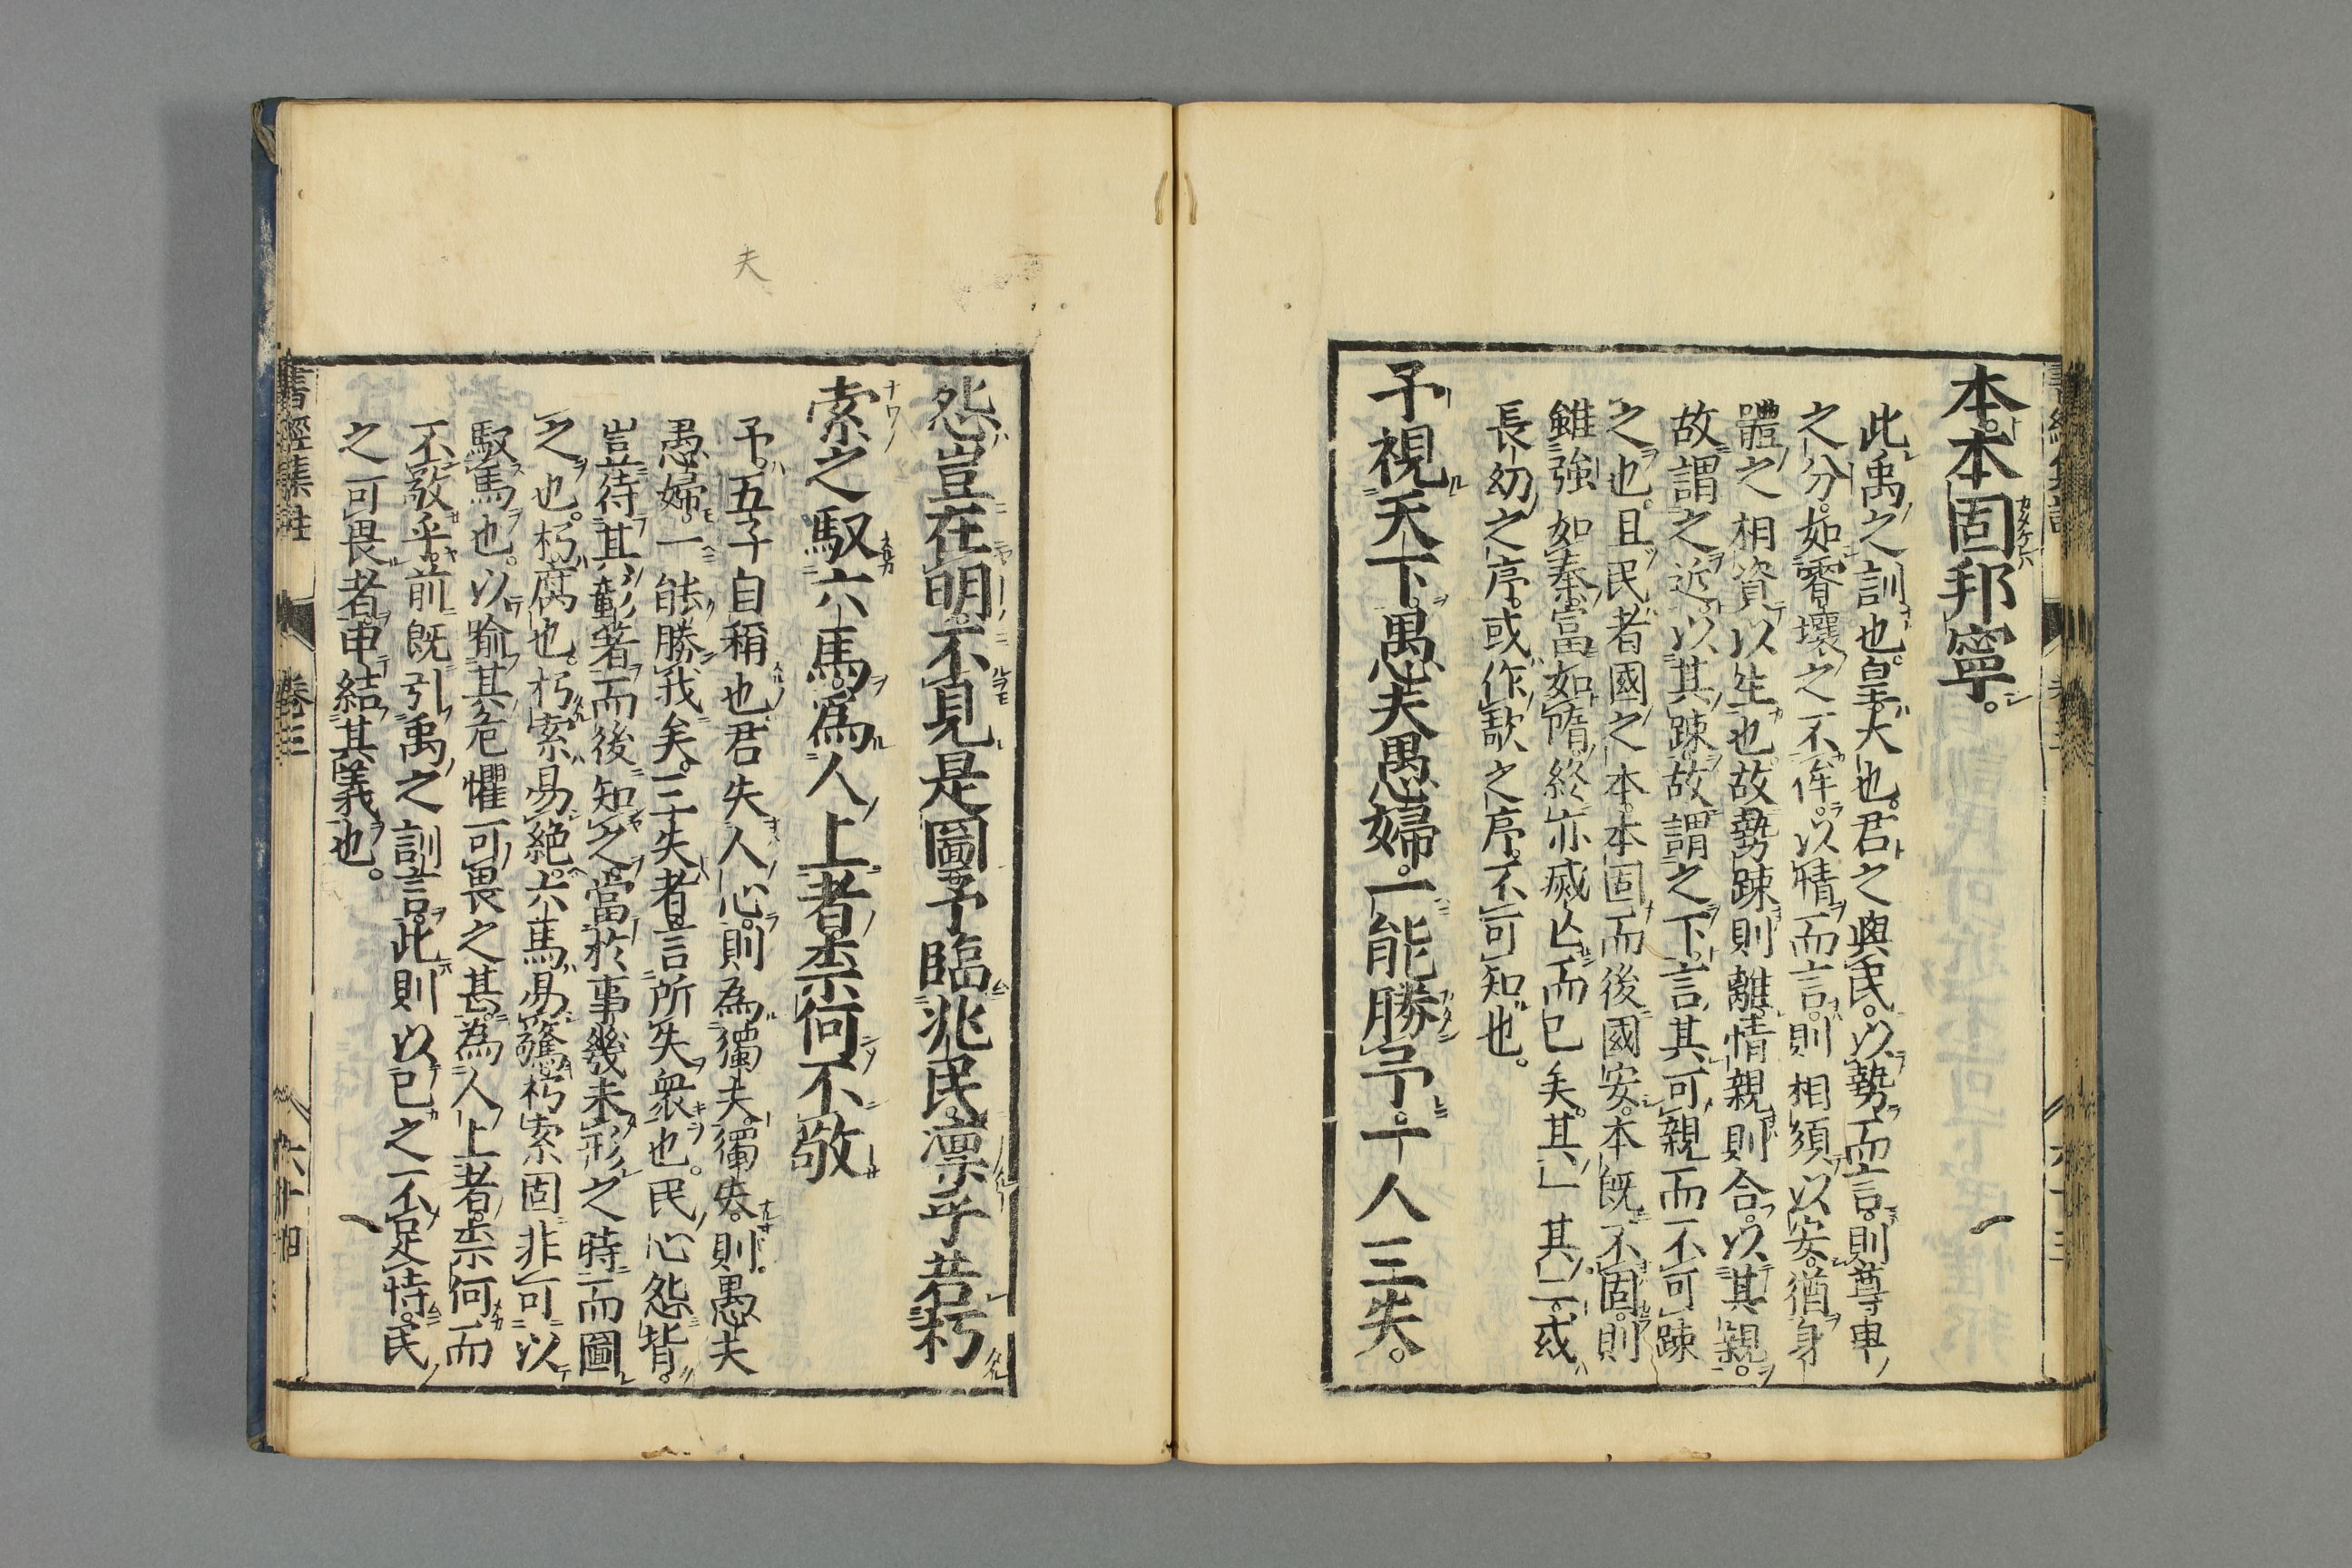 本。本固邦寧。
此禹之訓也。皇大也。君之與民。以勢而言。則尊卑
之分。如霄壤之不侔。以情而言。則相須以安。猶身
體之相資以生也。故勢踈則離。情親則合。以其親。
故謂之近。以其踈。故謂之下。言其可親而不可踈
之也。且民者國之本。本固而後國安。本既不固。則
雖強如秦。富如隋。終亦滅亡而已矣。其一其二。或
長幼之序。或作歌之序。不可知也。
予視天下。愚夫愚婦。一能勝予。一人三失。
怨豈在明。不見是圖。予臨兆民。凛乎若朽
索之馭六馬。爲人上者。柰何不敬
予。五子自稱也。君失人心。則為獨夫。獨失。則。愚夫
愚婦。一能勝我矣。三失者。言所失衆也。民心怨背。
豈待其彰著而後知之。當於事幾未形之時而圖
之也。朽。腐也。朽索易絶。六馬易驚。朽索固非可以
馭馬也。以喻其危懼可畏之甚。為人上者。柰何而
不敬乎。前既引禹之訓言。此則以已之不足恃。民
之可畏者。申結其義也。
夫
書經集註
卷三
六十四
六十三